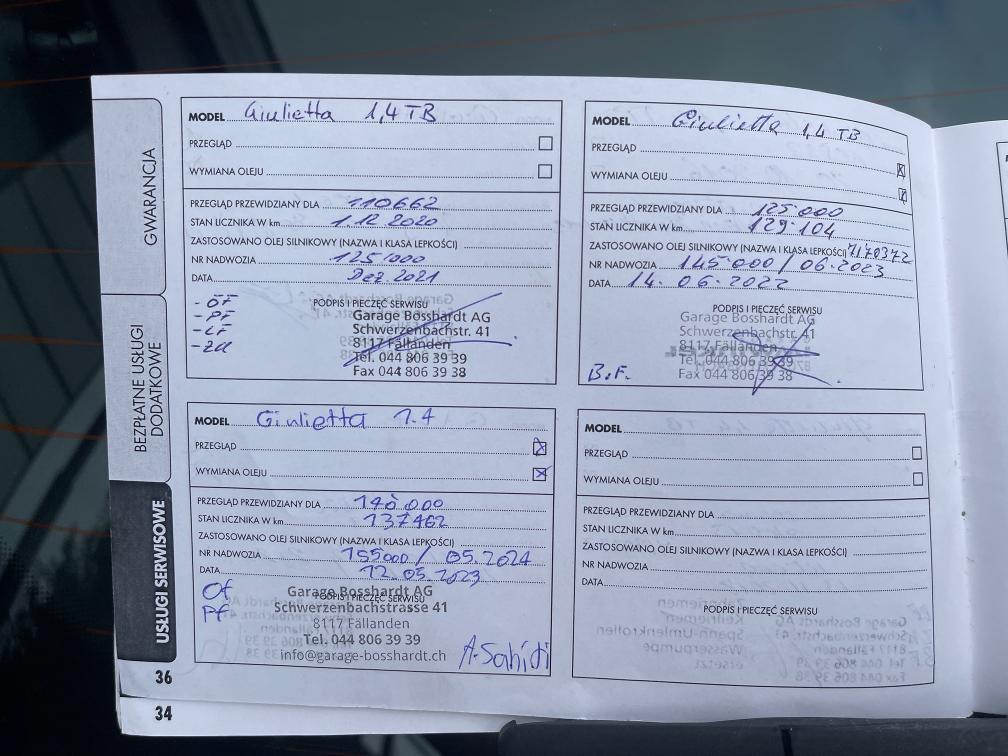 GWARANCJA
BEZPŁATNE USŁUGI
DODATKOWE
USŁUGI SERWISOWE
MODEL Giulietta 1,4 TB
PRZEGLĄD
WYMIANA OLEJU
PRZEGLĄD PRZEWIDZIANY DLA 110662
STAN LICZNIKA W km 1.12.2020
ZASTOSOWANO OLEJ SILNIKOWY (NAZWA I KLASA LEPKOŚCI)
NR NADWOZIA 125'000
DATA Dez 2021
- ÖF
- PF
- LF
- ZK
PODPIS I PIECZĘĆ SERWISU
Garage Bosshardt AG
Schwerzenbachstr. 41
8117 Fällanden
Tel. 044 806 39 39
Fax 044 806 39 38
MODEL Giulietta 1,4 TB
PRZEGLĄD
WYMIANA OLEJU
PRZEGLĄD PRZEWIDZIANY DLA 125'000
STAN LICZNIKA W km 129'104
ZASTOSOWANO OLEJ SILNIKOWY (NAZWA I KLASA LEPKOŚCI) 7170372
NR NADWOZIA 145'000 / 06.2023
DATA 14.06.2022
PODPIS I PIECZĘĆ SERWISU
Garage Bosshardt AG
Schwerzenbachstr. 41
8117 Fällanden
Tel. 044 806 39 39
Fax 044 806 39 38
B.F.
MODEL Giulietta 1.4
PRZEGLĄD
WYMIANA OLEJU
PRZEGLĄD PRZEWIDZIANY DLA 140'000
STAN LICZNIKA W km 137462
ZASTOSOWANO OLEJ SILNIKOWY (NAZWA I KLASA LEPKOŚCI)
NR NADWOZIA 155000 / 05.2024
DATA 12.05.2023
Of
Pf
PODPIS I PIECZĘĆ SERWISU
Garage Bosshardt AG
Schwerzenbachstrasse 41
8117 Fällanden
Tel. 044 806 39 39
info@garage-bosshardt.ch
MODEL
PRZEGLĄD
WYMIANA OLEJU
PRZEGLĄD PRZEWIDZIANY DLA
STAN LICZNIKA W km
ZASTOSOWANO OLEJ SILNIKOWY (NAZWA I KLASA LEPKOŚCI)
NR NADWOZIA
DATA
PODPIS I PIECZĘĆ SERWISU
36
34